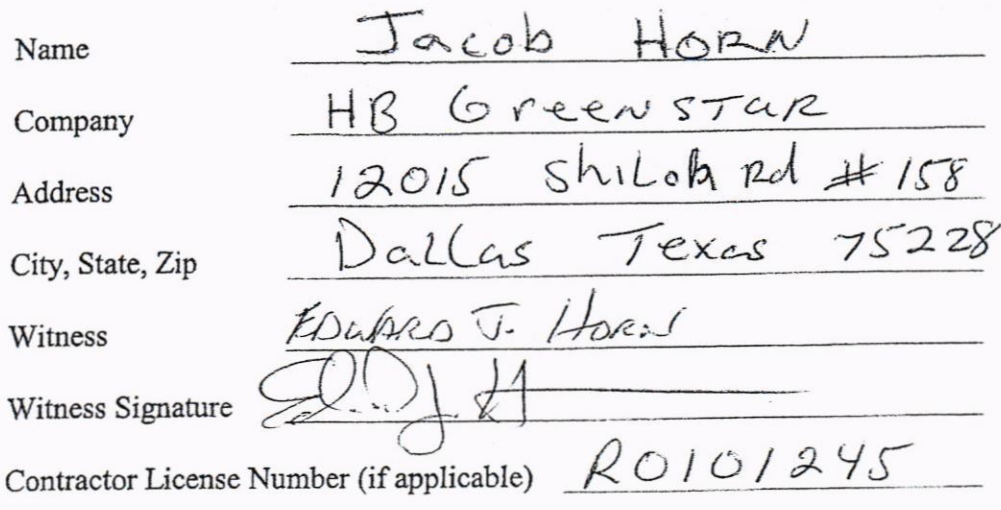 Name Jacob HORN
Company HB Greenstar
Address 12015 Shiloh Rd # 158
City, State, Zip Dallas Texas 75228
Witness EDWARD J. HORN
Witness Signature
Contractor License Number (if applicable) R0101245